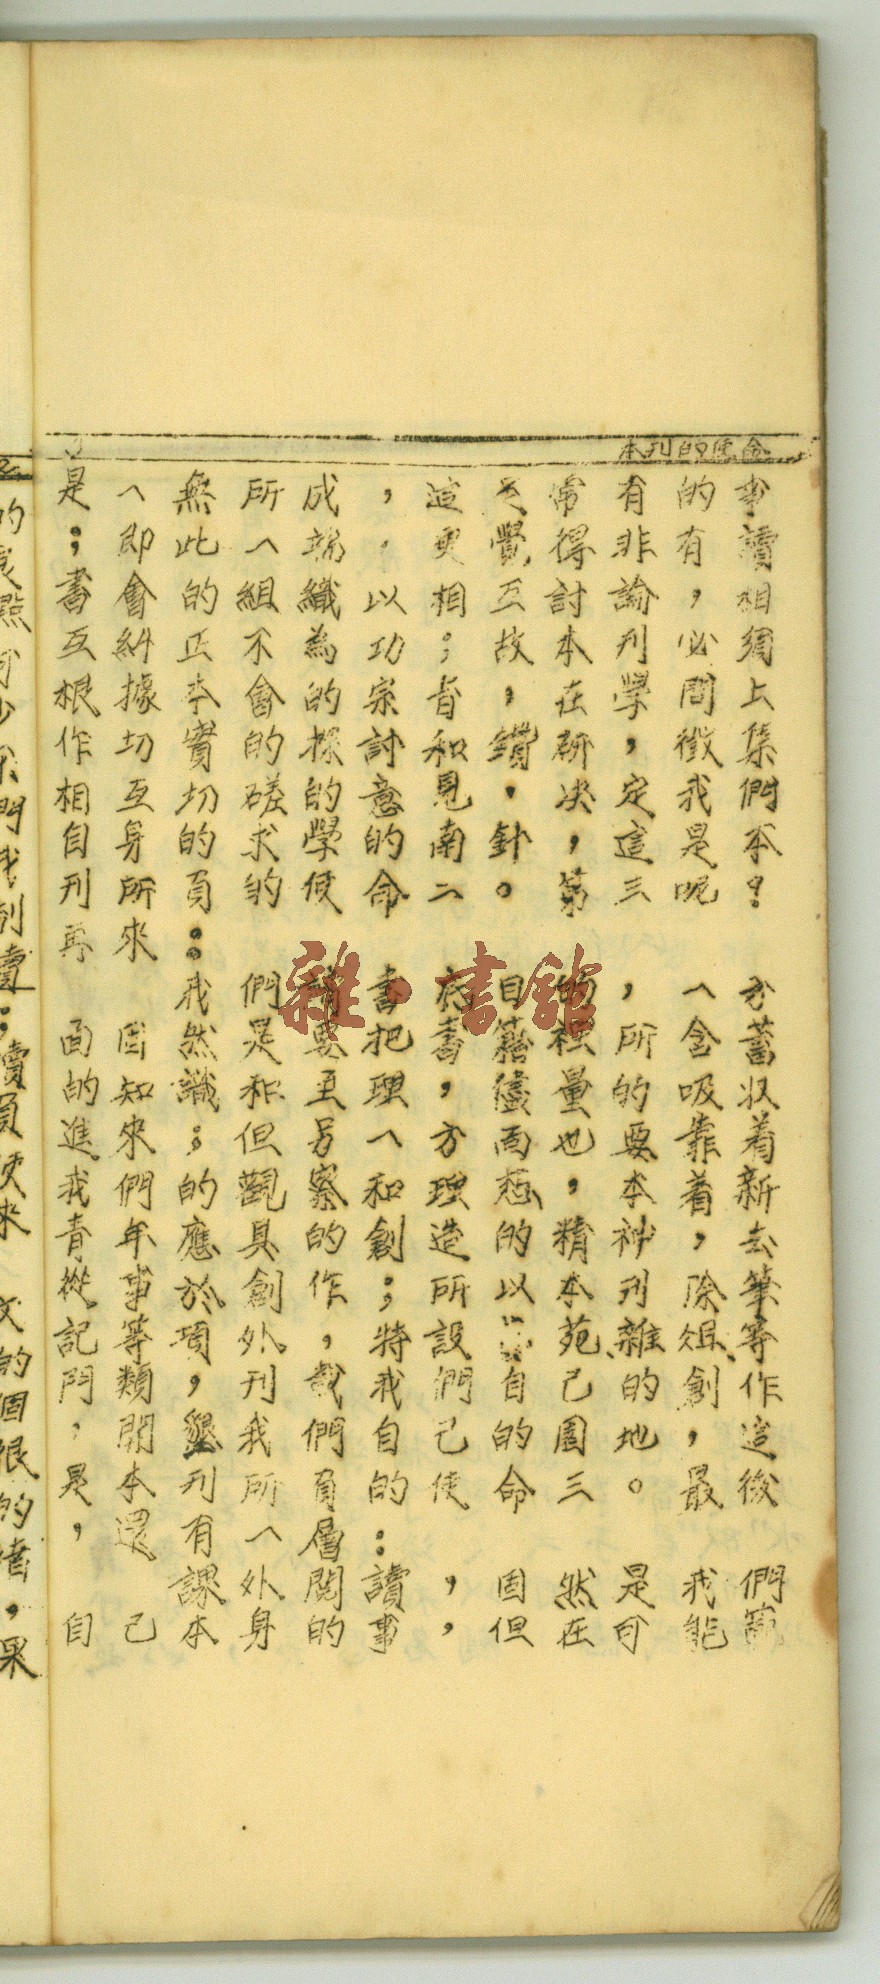 本刊的使命
是一無所成，這是常有的事
；即此一端，更覺得非有讀
書會的組織以相互討論，相
互糾正不為功；故本刊必須
根據本會的宗旨，在學問上
作切實的探討和鑽研，徵集
相互切磋的意見，決定我們
自身的求學的南針，這是本
刊所負的使命二。第三呢？
再來：
我們讀書的目的，一方
面固然是要把書籍裡所含蓄
的知識和至理，儘量的吸收
進來；但另一方面也要靠着
我們的觀察和理想，本着新
青年應具的創造的精神去
從事於創作；所以本刊除筆
記等項外，特設苑雜俎等
門類，刊載我們自己的創作
，開墾我們自己的園地。這
是本刊所負的使命三。最後
，還有一層：
課外閱讀，固然是我們
自己本身的事，但在可能範
雜·書館